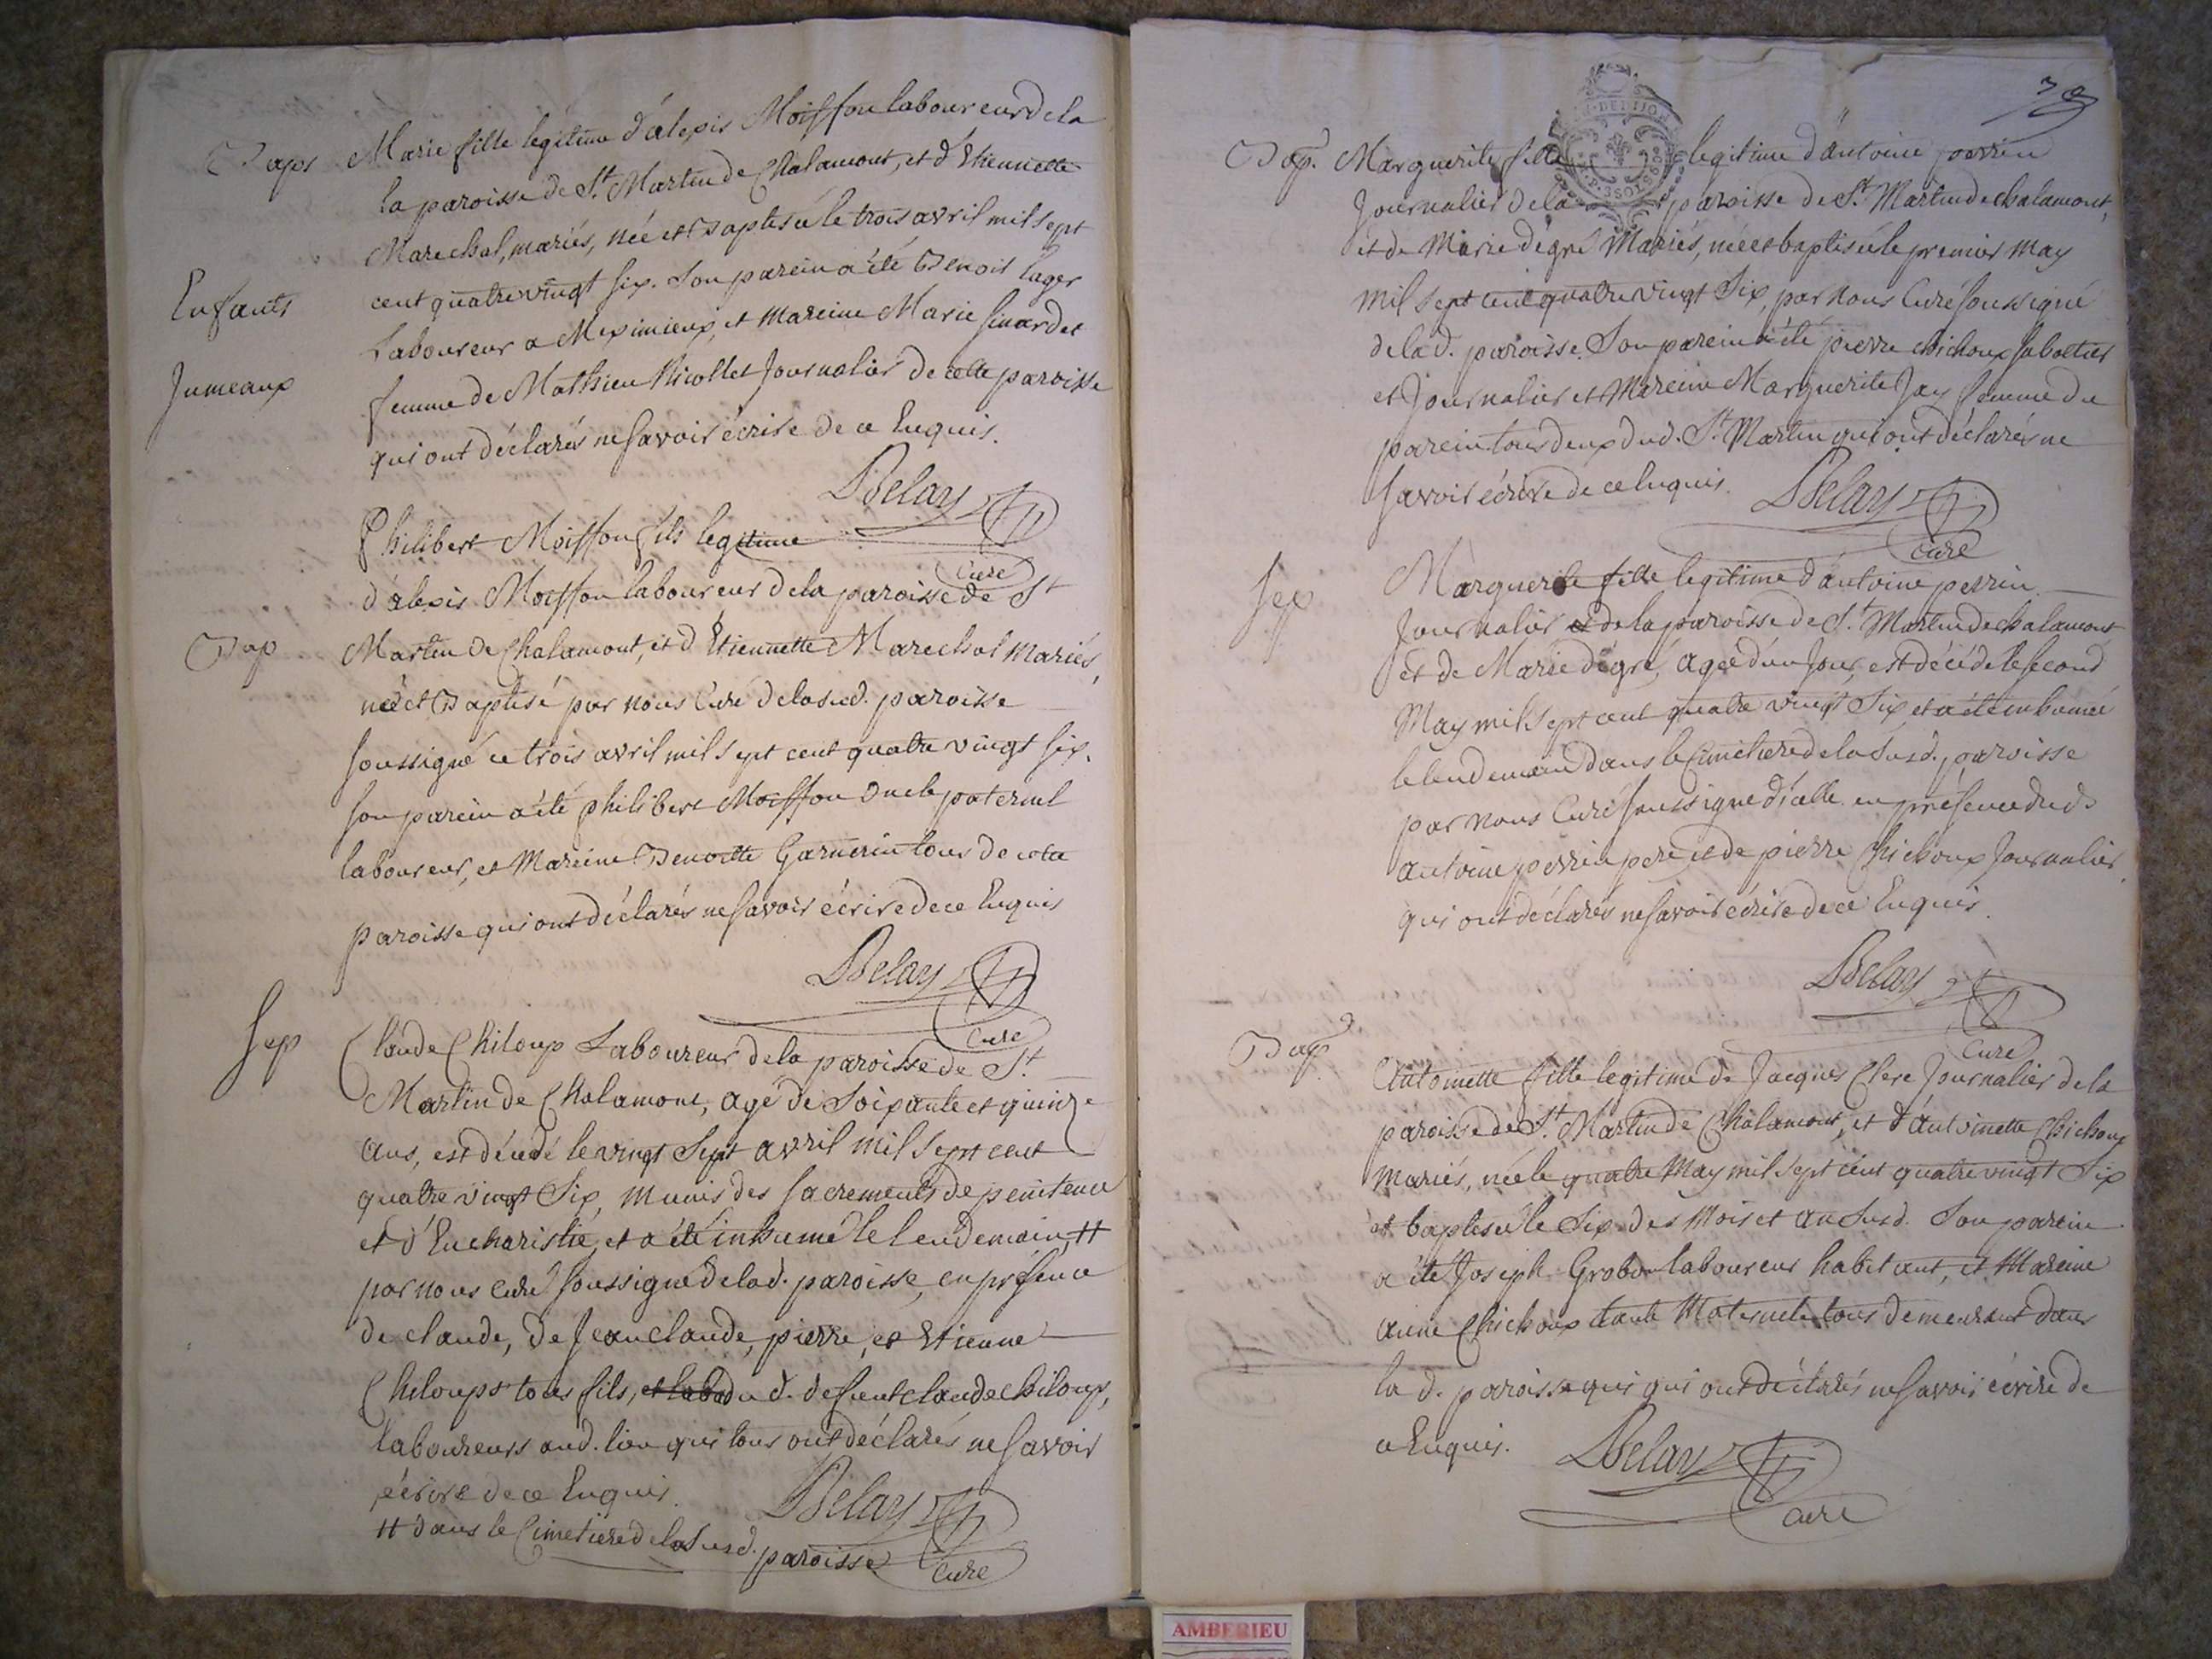 Baps
Marie fille legitime d'alexis Moisson laboureur de la
la paroisse de St. Martin de Chalamont, et d'Etiennette
Marechal, mariés, née et Baptisée le trois avril mil sept
cent quatre vingt six. Son parein a été Benoit Lager
Enfants
Laboureur a Meximieux, et Mareine Marie Sinardet
Jumeaux
femme de Mathieu Nicollet Journalier de cette paroisse
qui ont déclarés ne savoir écrire de ce Enquis.
Belay
Curé
Philibert Moisson fils legitime
d'alexis Moisson laboureur de la paroisse de St
Bap
Martin de Chalamont, et d'Etiennette Marechal Mariés,
né et Baptisé par nous Curé de la sud. paroisse
soussigné ce trois avril mil sept cent quatre vingt six.
son parein a été philibert Moisson oncle paternel
laboureur, et Mareine Benoitte Garnerin tous de cette
paroisse qui ont déclarés ne savoir écrire de ce Enquis
Belay
Curé
Sep
Claude Chiloup Laboureur de la paroisse de St.
Martin de Chalamont, agé de Soixante et quinze
ans, est décédé le vingt Sept avril mil sept cent
quatre vingt Six, munis des sacrements de penitence
et d'Eucharistie, et a été inhumé le lendemain, ++
par nous curé soussigné de la d. paroisse, en présence
de claude, de Jean claude, pierre, et Etienne
Chiloups tous fils, du d. defunt claude Chiloup,
laboureurs aud. lieu qui tous ont déclarés ne savoir
écrire de ce Enquis.
Belay
++ dans le Cimetiere de la Susd. paroisse
Curé
79
Bap.
Marguerite fille legitime d'antoine perrin
Journalier de la paroisse de St. Martin de chalamont,
et de Marie dégré Mariés, née et baptisée le premier may
mil sept cent quatre vingt Six, par nous Curé soussigné
de la d. paroisse. Son parein a été pierre chichoux sabottier
et Journalier et Mareine Marguerite Jay femme du
parein tous deux dud. St. Martin qui ont déclarés ne
savoir écrire de ce Enquis.
Belay
Curé
Sep
Marguerite fille legitime d'antoine perrin
Journalier de la paroisse de St. Martin de chalamont
et de Marie dégré, agée d'un Jour, est décédé le second
May mil sept cent quatre vingt Six et a été inhumée
le lendemain dans le Cimetiere de la Susd. paroisse
par nous Curé soussigné d'icelle en présence dud
antoine perrin pere et de pierre Chichoux Journalier,
qui ont déclarés ne savoir écrire de ce Enquis.
Belay
Curé
Bap
Antoinette fille legitime de Jacques Clere Journalier de la
paroisse de St. Martin de Chalamont, et d'Antoinette Chichoux
mariés, née le quatre May mil sept cent quatre vingt Six
et baptisée le Six des mois et an Susd. Son parein
a été Joseph Grobon laboureur habitant, et Mareine
anne Chichoux tante Maternele tous demeurant dans
la d. paroisse qui qui ont déclarés ne savoir écrire de
ce Enquis.
Belay
Curé
AMBERIEU